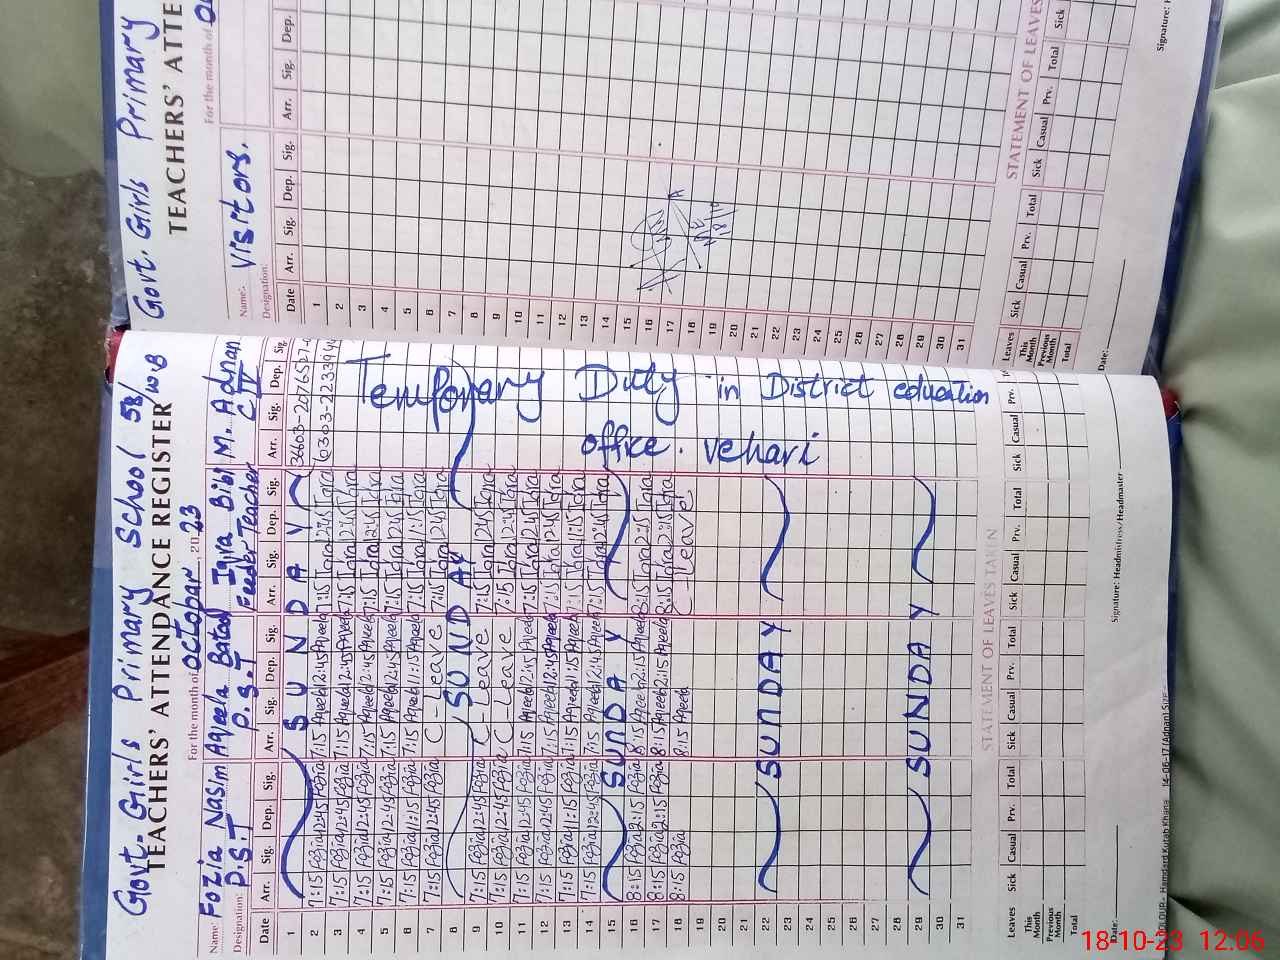 Govt. Girls Primary School 58/WB
TEACHERS' ATTENDANCE REGISTER
For the month of octobar, 2023
Name: Fozia Nasim Aqeela Batool Iqra Bibi M. Adnan
Designation: P.S.T P.S.T Feeder Teacher C IV
Date Arr. Sig. Dep. Sig. Arr. Sig. Dep. Sig. Arr. Sig. Dep. Sig. Arr. Sig. Dep. Sig.
1 SUNDAY
2 7:15 Fozia 12:45 Fozia 7:15 Aqeela 12:45 Aqeela 7:15 Iqra 12:45 Iqra
3 7:15 Fozia 12:45 Fozia 7:15 Aqeela 12:45 Aqeela 7:15 Iqra 12:45 Iqra
4 7:15 Fozia 12:45 Fozia 7:15 Aqeela 12:45 Aqeela 7:15 Iqra 12:45 Iqra
5 7:15 Fozia 12:45 Fozia 7:15 Aqeela 12:45 Aqeela 7:15 Iqra 12:45 Iqra
6 7:15 Fozia 11:15 Fozia 7:15 Aqeela 11:15 Aqeela 7:15 Iqra 11:15 Iqra
7 7:15 Fozia 12:45 Fozia C-Leave 7:15 Iqra 12:45 Iqra
8 SUNDAY
9 7:15 Fozia 12:45 Fozia C-Leave 7:15 Iqra 12:45 Iqra
10 7:15 Fozia 12:45 Fozia C-Leave 7:15 Iqra 12:45 Iqra
11 7:15 Fozia 12:45 Fozia 7:15 Aqeela 12:45 Aqeela 7:15 Iqra 12:45 Iqra
12 7:15 Fozia 12:45 Fozia 7:15 Aqeela 12:45 Aqeela 7:15 Iqra 12:45 Iqra
13 7:15 Fozia 11:15 Fozia 7:15 Aqeela 11:15 Aqeela 7:15 Iqra 11:15 Iqra
14 7:15 Fozia 12:45 Fozia 7:15 Aqeela 12:45 Aqeela 7:15 Iqra 12:45 Iqra
15 SUNDAY
16 8:15 Fozia 2:15 Fozia 8:15 Aqeela 2:15 Aqeela 8:15 Iqra 2:15 Iqra
17 8:15 Fozia 2:15 Fozia 8:15 Aqeela 2:15 Aqeela 8:15 Iqra 2:15 Iqra
18 8:15 Fozia 8:15 Aqeela C-Leave
19
20
21
22 SUNDAY
23
24
25
26
27
28
29 SUNDAY
30
31
Temporary Duty in District education
office. vehari
STATEMENT OF LEAVES TAKEN
Leaves Sick Casual Prv. Total Sick Casual Prv. Total Sick Casual Prv. Total Sick Casual Prv.
This Month
Previous Month
Total
Date: Signature: Headmistress/Headmaster
Govt. Girls Primary
TEACHERS' ATTE
For the month of
Name: Visitors.
Designation:
Date Arr. Sig. Dep. Sig. Arr. Sig. Dep.
1
2
3
4
5
6
7
8
9
10
11
12
13
14
15
16
17
18
19
20
21
22
23
24
25
26
27
28
29
30
31
STATEMENT OF LEAVES
Leaves Sick Casual Prv. Total Sick Casual Prv. Total Sick
This Month
Previous Month
Total
Date:
Signature:
18-10-23 12:06